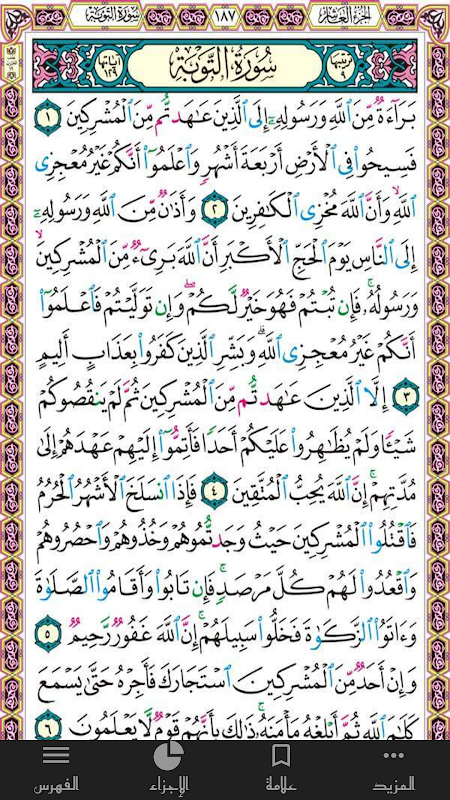 سورة التوبة ١٨٧ الجزء العاشر
ترتيبها ٩ سُورَةُ التَّوْبَةِ آياتها ١٢٩
بَرَآءَةٌ مِّنَ ٱللَّهِ وَرَسُولِهِۦٓ إِلَى ٱلَّذِينَ عَٰهَدتُّم مِّنَ ٱلْمُشْرِكِينَ ١
فَسِيحُوا۟ فِى ٱلْأَرْضِ أَرْبَعَةَ أَشْهُرٍ وَٱعْلَمُوٓا۟ أَنَّكُمْ غَيْرُ مُعْجِزِى
ٱللَّهِ ۙ وَأَنَّ ٱللَّهَ مُخْزِى ٱلْكَٰفِرِينَ ٢ وَأَذَٰنٌ مِّنَ ٱللَّهِ وَرَسُولِهِۦٓ
إِلَى ٱلنَّاسِ يَوْمَ ٱلْحَجِّ ٱلْأَكْبَرِ أَنَّ ٱللَّهَ بَرِىٓءٌ مِّنَ ٱلْمُشْرِكِينَ ۙ
وَرَسُولُهُۥ ۚ فَإِن تُبْتُمْ فَهُوَ خَيْرٌ لَّكُمْ ۖ وَإِن تَوَلَّيْتُمْ فَٱعْلَمُوٓا۟
أَنَّكُمْ غَيْرُ مُعْجِزِى ٱللَّهِ ۗ وَبَشِّرِ ٱلَّذِينَ كَفَرُوا۟ بِعَذَابٍ أَلِيمٍ
٣ إِلَّا ٱلَّذِينَ عَٰهَدتُّم مِّنَ ٱلْمُشْرِكِينَ ثُمَّ لَمْ يَنقُصُوكُمْ
شَيْـًٔا وَلَمْ يُظَٰهِرُوا۟ عَلَيْكُمْ أَحَدًا فَأَتِمُّوٓا۟ إِلَيْهِمْ عَهْدَهُمْ إِلَىٰ
مُدَّتِهِمْ ۚ إِنَّ ٱللَّهَ يُحِبُّ ٱلْمُتَّقِينَ ٤ فَإِذَا ٱنسَلَخَ ٱلْأَشْهُرُ ٱلْحُرُمُ
فَٱقْتُلُوا۟ ٱلْمُشْرِكِينَ حَيْثُ وَجَدتُّمُوهُمْ وَخُذُوهُمْ وَٱحْصُرُوهُمْ
وَٱقْعُدُوا۟ لَهُمْ كُلَّ مَرْصَدٍ ۚ فَإِن تَابُوا۟ وَأَقَامُوا۟ ٱلصَّلَوٰةَ
وَءَاتَوُا۟ ٱلزَّكَوٰةَ فَخَلُّوا۟ سَبِيلَهُمْ ۚ إِنَّ ٱللَّهَ غَفُورٌ رَّحِيمٌ ٥
وَإِنْ أَحَدٌ مِّنَ ٱلْمُشْرِكِينَ ٱسْتَجَارَكَ فَأَجِرْهُ حَتَّىٰ يَسْمَعَ
كَلَٰمَ ٱللَّهِ ثُمَّ أَبْلِغْهُ مَأْمَنَهُۥ ۚ ذَٰلِكَ بِأَنَّهُمْ قَوْمٌ لَّا يَعْلَمُونَ ٦
المزيد علامة الإجزاء الفهرس